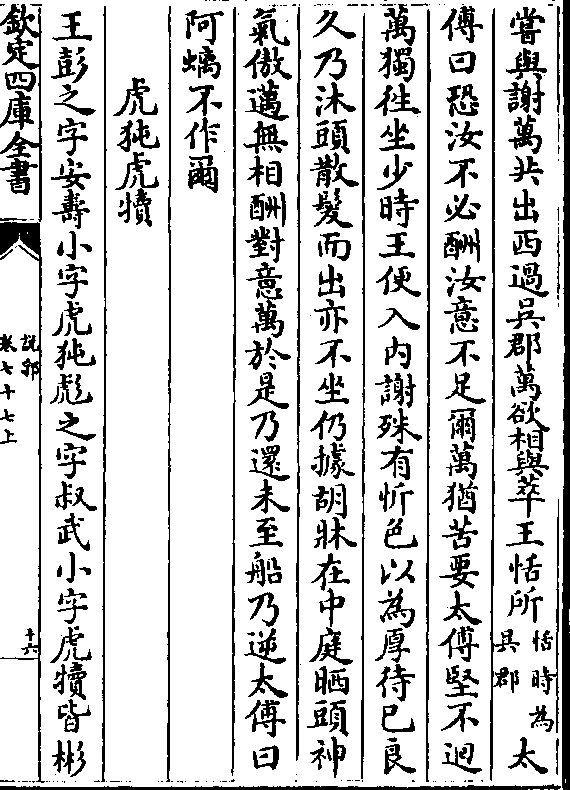 嘗與謝萬共出西過吳郡萬欲相與萃王恬所恬時為吳郡太
傅曰恐汝不必酬汝意不足爾萬猶苦要太傅堅不迴
萬獨徃坐少時王便入內謝殊有忻色以為厚待已良
久乃沐頭散髮而出亦不坐仍據胡牀在中庭晒頭神
氣傲邁無相酬對意萬於是乃還未至船乃逆太傅曰
阿螭不作爾
虎㹠虎犢
王彭之字安壽小字虎㹠彪之字叔武小字虎犢皆彬
欽定四庫全書
說郛
卷七十七上
十六